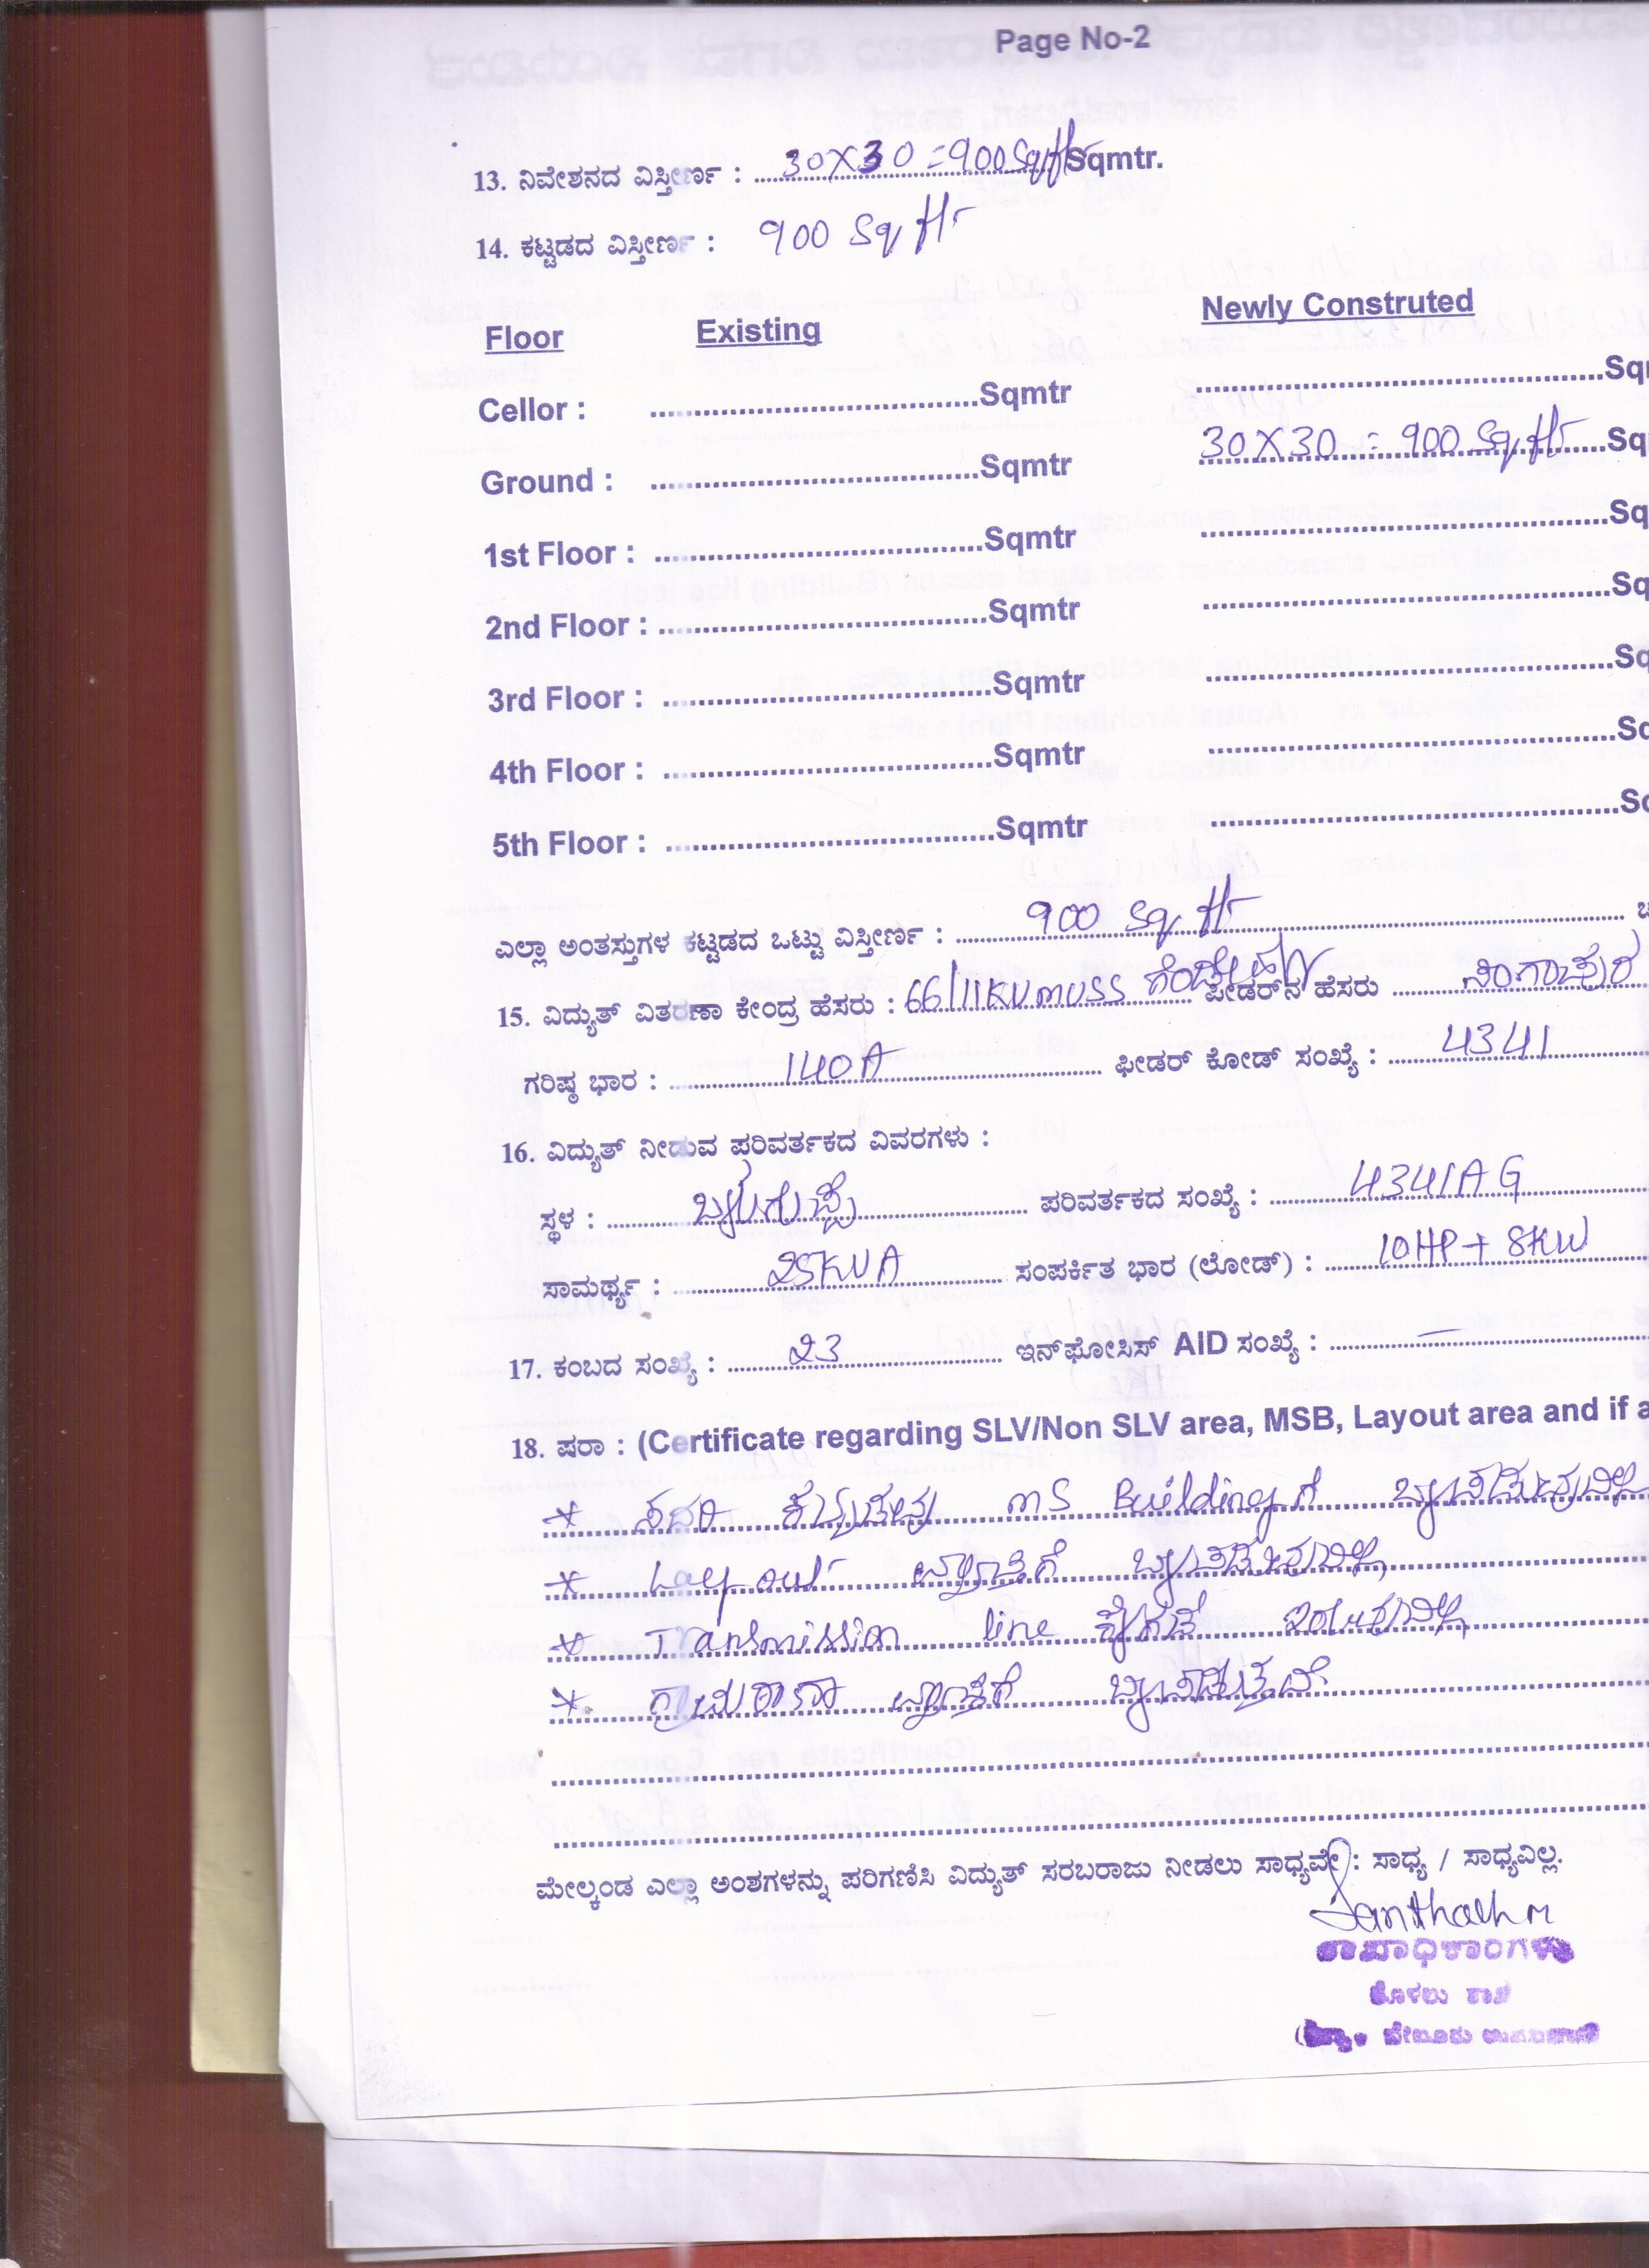 Page No-2
13. ನಿವೇಶನದ ವಿಸ್ತೀರ್ಣ : 30X30 = 900 Sqft Sqmtr.
14. ಕಟ್ಟಡದ ವಿಸ್ತೀರ್ಣ : 900 Sq ft
Floor Existing Newly Construted
Cellor : ........Sqmtr ........Sqm
Ground : ........Sqmtr 30X30 = 900 Sq ft ........Sq
1st Floor : ........Sqmtr ........Sq
2nd Floor : ........Sqmtr ........Sq
3rd Floor : ........Sqmtr ........Sq
4th Floor : ........Sqmtr ........Sq
5th Floor : ........Sqmtr ........Sq
ಎಲ್ಲಾ ಅಂತಸ್ತುಗಳ ಕಟ್ಟಡದ ಒಟ್ಟು ವಿಸ್ತೀರ್ಣ : 900 Sq ft
15. ವಿದ್ಯುತ್ ವಿತರಣಾ ಕೇಂದ್ರ ಹೆಸರು : 66/11KV MUSS ಫೀಡರ್‌ನ ಹೆಸರು
ಗರಿಷ್ಠ ಭಾರ : 140A ಫೀಡರ್ ಕೋಡ್ ಸಂಖ್ಯೆ : 4341
16. ವಿದ್ಯುತ್ ನೀಡುವ ಪರಿವರ್ತಕದ ವಿವರಗಳು :
ಸ್ಥಳ : ಪರಿವರ್ತಕದ ಸಂಖ್ಯೆ : 4341AG
ಸಾಮರ್ಥ್ಯ : 25KVA ಸಂಪರ್ಕಿತ ಭಾರ (ಲೋಡ್) : 10HP + 8KW
17. ಕಂಬದ ಸಂಖ್ಯೆ : 23 ಇನ್‌ಫೋಸಿಸ್ AID ಸಂಖ್ಯೆ : —
18. ಷರಾ : (Certificate regarding SLV/Non SLV area, MSB, Layout area and if a
* ಸದರಿ ಕಟ್ಟಡವು MS Buildingಗೆ ಒಳಪಡುವುದಿಲ್ಲ
* Layout ವ್ಯಾಪ್ತಿಗೆ ಒಳಪಡುವುದಿಲ್ಲ
* Transmission line ಕೆಳಗಡೆ ಇರುವುದಿಲ್ಲ
* ಗ್ರಾಮಠಾಣಾ ವ್ಯಾಪ್ತಿಗೆ ಒಳಪಡುತ್ತದೆ
ಮೇಲ್ಕಂಡ ಎಲ್ಲಾ ಅಂಶಗಳನ್ನು ಪರಿಗಣಿಸಿ ವಿದ್ಯುತ್ ಸರಬರಾಜು ನೀಡಲು ಸಾಧ್ಯವೇ : ಸಾಧ್ಯ / ಸಾಧ್ಯವಿಲ್ಲ.